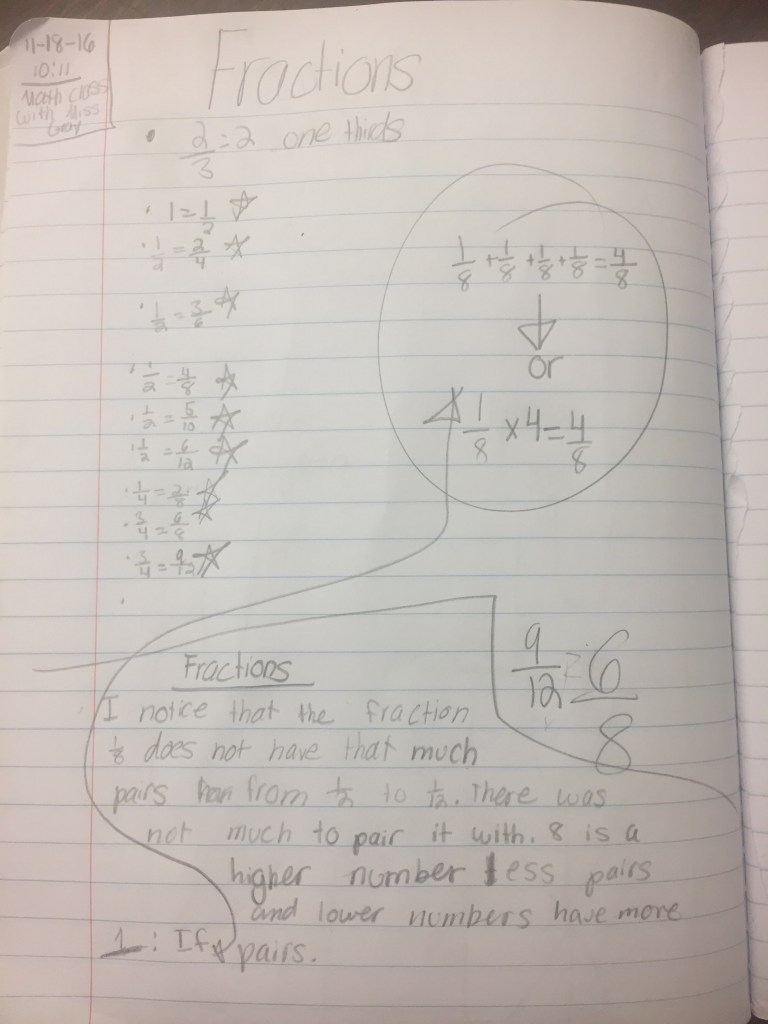 11-18-16
10:11
Math class
with Miss
Gray
Fractions
• 2/3 = 2 one thirds
• 1 = 1/2 ☆
• 1/2 = 2/4 ☆
• 1/2 = 3/6 ☆
• 1/2 = 4/8 ☆
• 1/2 = 5/10 ☆
• 1/2 = 6/12 ☆
• 1/4 = 2/8 ☆
• 3/4 = 6/8 ☆
• 3/4 = 9/12 ☆
1/8 + 1/8 + 1/8 + 1/8 = 4/8
↓
or
1/8 × 4 = 4/8
9/12 = 6/8
Fractions
I notice that the fraction
1/8 does not have that much
pairs than from 1/2 to 1/12. There was
not much to pair it with. 8 is a
higher number less pairs
and lower numbers have more
pairs.
1: If